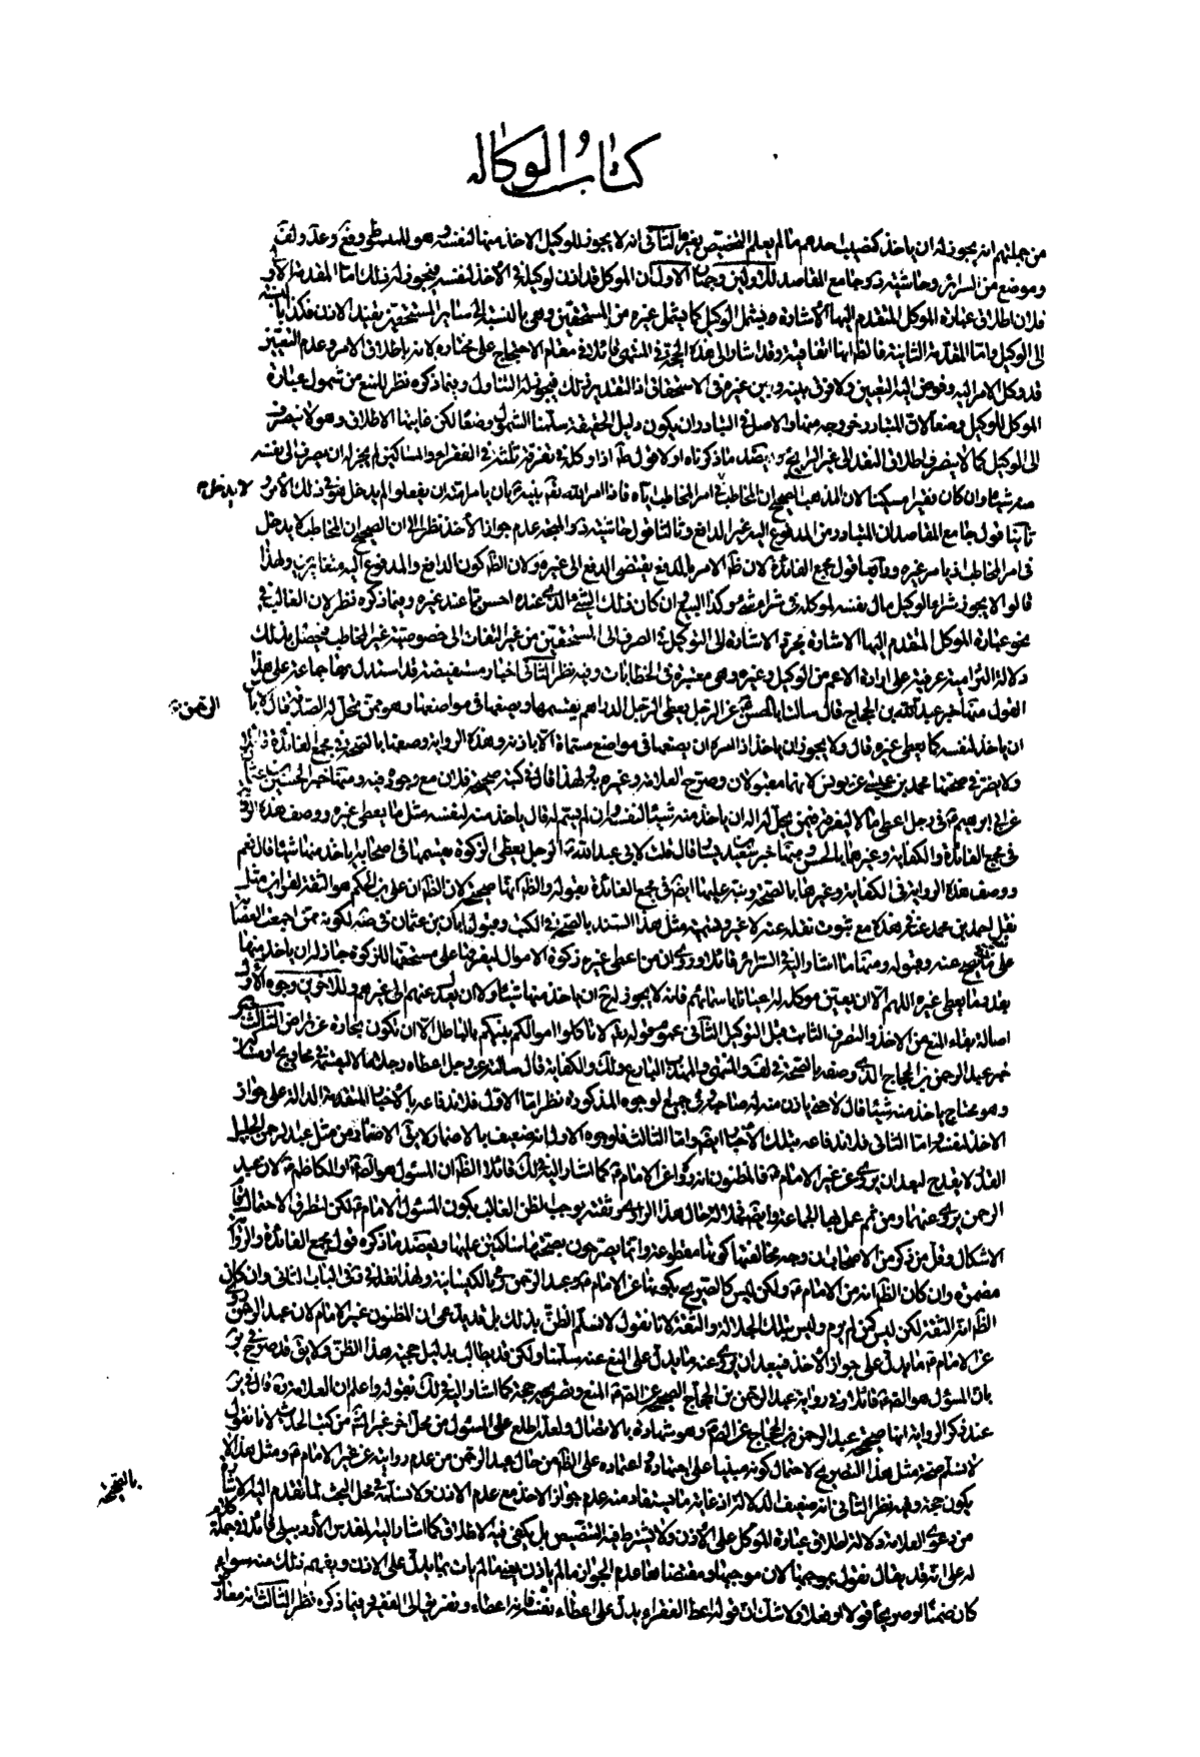 كتاب الوكاله
من جملتهم انه يجوز له ان ياخذ كنصيب احدهم ما لم يعلم التخصيص بغيره الثاني انه لا يجوز للوكيل الاخذ منها لنفسه وهو للمبسوط وفع وعد ولف
وموضع من السرائر وحاشيته وجامع المقاصد للاولين وجهان الاول ان الموكل قد اذن لوكيله في الأخذ لنفسه فيجوز له ذلك اما المقدمة الأولى
فلان اطلاق عبارة الموكل المتقدم اليها الأشارة يشمل الوكيل كما يشمل غيره من المستحقين وهي بالنسبة الى سائر المستحقين يفيد الاذن فكذا بالنسبة
الى الوكيل واما المقدمة الثانية فالظ انها اتفاقية وقد اشار الى هذه الحجة في المنتهى قائلا في مقام الاحتجاج على مختاره لانه باطلاق الامر وعدم التعيين
قد وكل الامر اليه وفوض اليه التعيين ولا فرق بينه وبين غيره في الاستحقاق اذ التقدير ذلك فيجوز له التناول وفيما ذكره نظر للمنع من شمول عبارة
الموكل للوكيل وضعا لان المتبادر خروجه منها والاصل في التبادر ان يكون دليل الحقيقة سلمنا الشمول وضعا لكن غايتها الاطلاق وهو لا ينصرف
الى الوكيل كما لا ينصرف اطلاق النقد الى غير الرايج ويعضد ما ذكرناه اولا قول ط اذا وكله في تفرقة ثلثه في الفقراء والمساكين لم يجز له ان يصرف الى نفسه
منه شيئا وان كان فقيرا مسكينا لان المذهب الصحيح ان المخاطب في امر المخاطب اياه فاذا امر الله تع نبيه بان يامر امته ان يفعلوا لم يدخل هو في ذلك الأمر
لا يدخل
ثانيا قول جامع المقاصد ان المتبادر من المدفوع اليه غير الدافع وثالثا قول حاشيته والمتجه عدم جواز الأخذ نظرا الى ان الصحيح ان المخاطب لا يدخل
في امر المخاطب اذ يامر غيره ورابعا قول مجمع الفائدة لان ظ الامر بالدفع يقتضي الدفع الى غيره ولان الظ كون الدافع والمدفوع اليه متغايرين ولهذا
قالوا لا يجوز شراء الوكيل مال نفسه لموكله في شراء شيء وكذا البيع وان كان ذلك الشيء الذي عنده احسن مما عند غيره وفيما ذكره نظر لان الغالب في
نحو عبارة الموكل المتقدم اليها الاشارة بمجرد الاشارة الى التوكيل في الصرف الى المستحقين من غير التفات الى خصوصية غير المخاطب فيحصل بذلك
دلالة التزامية عرفية على ارادة الاعم من الوكيل وغيره وهي معتبرة في الخطابات وفيه نظر الثاني اخبار مستفيضة قد استدل بها جماعة على هذا
القول منها خبر عبد الله بن الحجاج قال سالت ابا الحسن عن الرجل يعطي الرجل الدراهم يقسمها ويضعها في مواضعها وهو ممن تحل له الصدقة قال لا باس
الرحمن
ان ياخذ لنفسه كما يعطي غيره قال ولا يجوز ان ياخذ اذا امره ان يضعها في مواضع مسماة الا باذنه وهذه الرواية وصفها بالصحة في مجمع الفائدة
ولا يضر في صحتها محمد بن عيسى عن يونس لانهما مقبولان وصرح العلامة وغيره به ولهذا قال في كتبه صحيحة فلان مع وجوده فيه ومنها خبر الحسين بن عثمان
عن ابي ابراهيم في رجل اعطى مالا ليفرقه فيمن يحل له اله ان ياخذ منه شيئا لنفسه وان لم يسم له قال ياخذ منه لنفسه مثل ما يعطي غيره ووصف هذه
في مجمع الفائدة والكفاية وغيرها بالحسن ومنها خبر سعيد بن يسار قال قلت لابي عبد الله الرجل يعطي الزكوة يقسمها في اصحابه ياخذ منها شيئا قال نعم
ووصف هذه الرواية في الكفاية وغيرها بالصحة ونبه عليها ايضا في مجمع الفائدة بقوله والظ انها صحيحة لان الظ ان علي بن الحكم هو الثقة لقرائن مثل
نقل احمد بن محمد عنه في هذه مع ثبوت نقله عنه لا غير وتسمية مثل هذا السند بالصحة في الكتب وقبول ابان بن عثمان في صه لكونه ممن اجمعت العصابة
على تصحيح ما يصح عنه وقبوله ومنها ما اشار اليه في السرائر قائلا وروى ان من اعطى غيره زكوة الاموال ليفرقها على مستحقيها للزكوة جاز له ان ياخذ منها
بقدر ما يعطي غيره اللهم الا ان يعين موكله له اعيانا باسمائهم فانه لا يجوز له ح ان ياخذ منها شيئا ولا ان يعدل عنهم الى غيرهم وللاخرين وجوه الاول
اصالة بقاء المنع من الاخذ والتصرف الثابت قبل التوكيل الثاني عموم قوله تع لا تاكلوا اموالكم بينكم بالباطل الا ان تكون تجارة عن تراض الثالث
خبر عبد الرحمن بن الحجاج الذي وصفه بالصحة في لف والمنتهى والمهذب البارع ولك والكفاية قال سالته عن رجل اعطاه رجل مالا ليقسمه في محاويج او مساكين
وهو محتاج ياخذ منه شيئا قال لا حتى ياذن له صاحبه وفي جميع الوجوه المذكورة نظر اما الاول فلاندفاعه بالأخبار المتقدمة الدالة على جواز
الاخذ لنفسه واما الثاني فلاندفاعه بتلك الأخبار ايضا واما الثالث فلوجوه الاول انه ضعيف بالاضمار لا يق الاضمار من مثل عبد الرحمن الجليل
القدر لا يقدح لبعد ان يروي عن غير الامام فالمظنون انه رواها عن الامام كما اشار اليه في لك قائلا الظ ان المسئول هو الص او الكاظم لان عبد
الرحمن يروي عنهما ومن ثم عمل بها الجماعة وايضا جلالة حال هذا الراوي وثقته يوجب الظن الغالب بكون المسئول الامام لكن تطرق الاحتمال
الاشكال وقل من ذكر من الاصحاب ان وجه مخالفتها كونها مقطوعة وانما يصرحون بصحتها ساكتين عليها ويعضد ما ذكره قول مجمع الفائدة والرواية
مضمرة وان كان الظ انه من الامام ولكن ليس كالصريح بكونها عن الامام وعبد الرحمن رمي بالكيسانية ولهذا نقله في د في الباب الثاني وان كان
الظ انه الثقة لكن ليس كمن لم يرم وليس بتلك الجلالة والثقة لانا نقول لا نسلم الظن بذلك بل قد يدعى ان المظنون غير الامام لان عبد الرحمن
عن الامام ما يدل على جواز الأخذ فيبعد ان يروي عنه ما يدل على المنع عنه سلمنا ولكن قد يطالب بدليل حجية هذا الظن ولا يق قد صرح في ير
بان المسئول هو الص قائلا وفي رواية عبد الرحمن بن الحجاج الصحيحة عن الص المنع وتصريحه حجة كما اشار اليه في لك بقوله واعلم ان العلامة قال في ير
عند ذكر الرواية انها صحيحة عبد الرحمن بن الحجاج عن الص وهو شهادة بالاتصال ولعله اطلع على المسئول من محل آخر غير المشهور من كتب الحديث لانا نقول
لا نسلم حجية مثل هذا التصريح لاحتمال كونه مبنيا على اجتهاده واعتماده على الظ من حال عبد الرحمن من عدم روايته عن غير الامام ومثل هذا لا
يكون حجة وفيه نظر الثاني انه ضعيف الدلالة اذ غاية ما يستفاد منه عدم جواز الاخذ مع عدم الاذن ولا نسلمه في محل البحث لما تقدم اليه الاشارة
بالصحة
من دعوى العلامة دلالة اطلاق عبارة الموكل على الأذن ولا يشترط فيه التنصيص بل يكفي فيه الاطلاق كما اشار اليه المقدس الأردبيلي قائلا في جملة كلام
له على انه قد يقال نقول بموجبها لان موجبها ومقتضاها عدم الجواز ما لم ياذن يعني ما لم يات بما يدل على الاذن ويفهمه ذلك منه سواء
كان ضمنا او صريحا قولا او فعلا ولا شك ان قوله اعط الفقراء يدل على اعطاء نفسه فانه اعطاء وتفريق الى الفقير وفيما ذكره نظر الثالث انه معارض